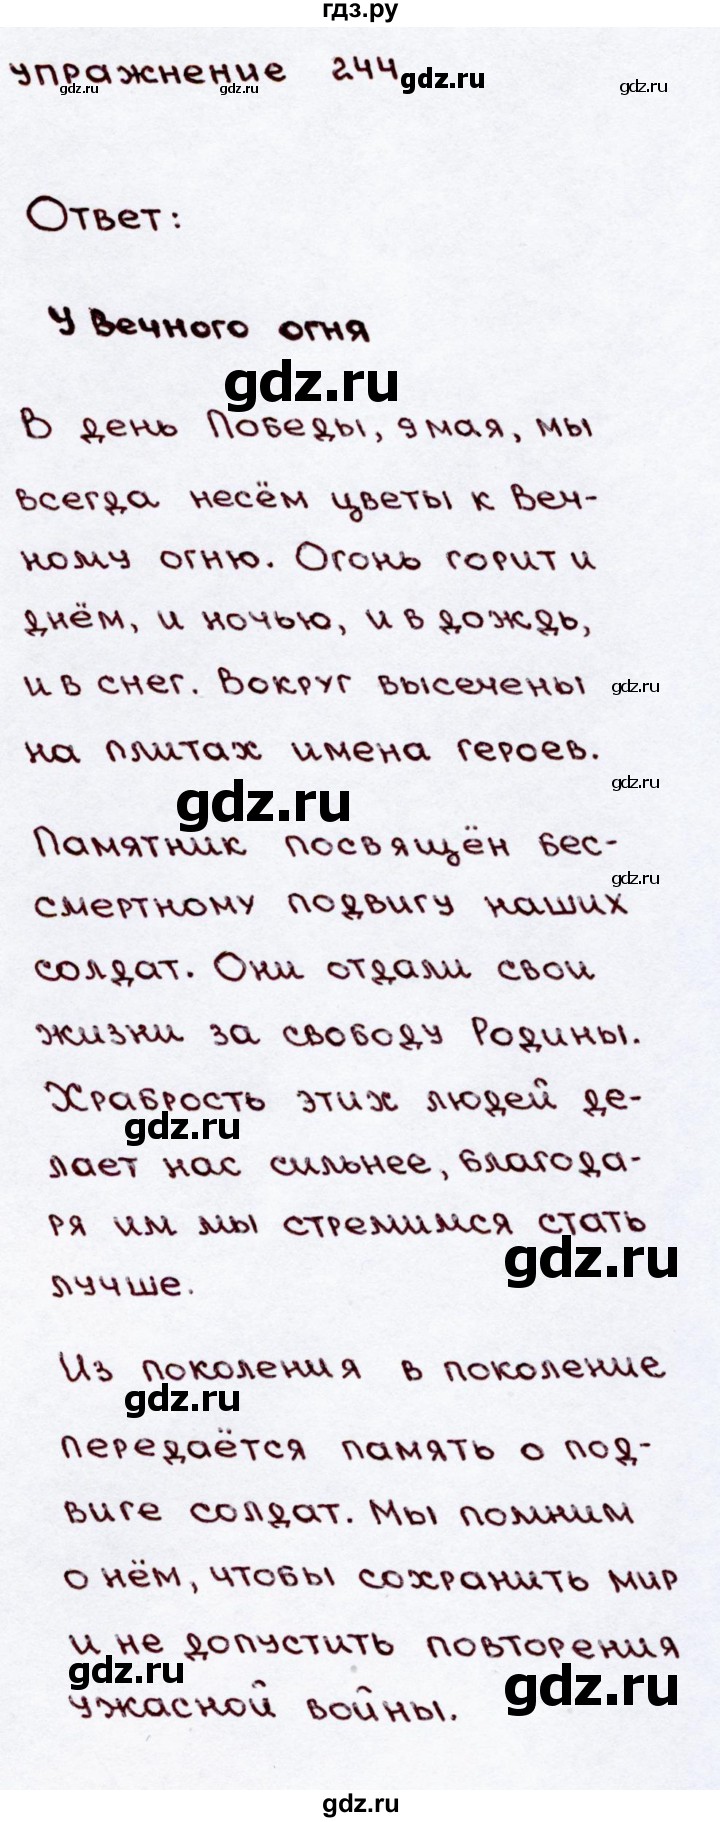 гдз.ру
упражнение 244
gdz.ru
gdz.ru
gdz.ru
gdz.ru
Ответ:
У Вечного огня
gdz.ru
В день Победы, 9 мая, мы
всегда несём цветы к Веч-
ному огню. Огонь горит и
днём, и ночью, и в дождь,
и в снег. Вокруг высечены
gdz.ru
на плитах имена героев.
gdz.ru
gdz.ru
Памятник посвящён бес-
gdz.ru
смертному подвигу наших
солдат. Они отдали свои
жизни за свободу Родины.
Храбрость этих людей де-
gdz.ru
лает нас сильнее, благода-
ря им мы стремимся стать
gdz.ru
лучше.
Из поколения в поколение
gdz.ru
передаётся память о под-
виге солдат. Мы помним
о нём, чтобы сохранить мир
и не допустить повторения
gdz.ru
gdz.ru
ужасной войны.
gdz.ru